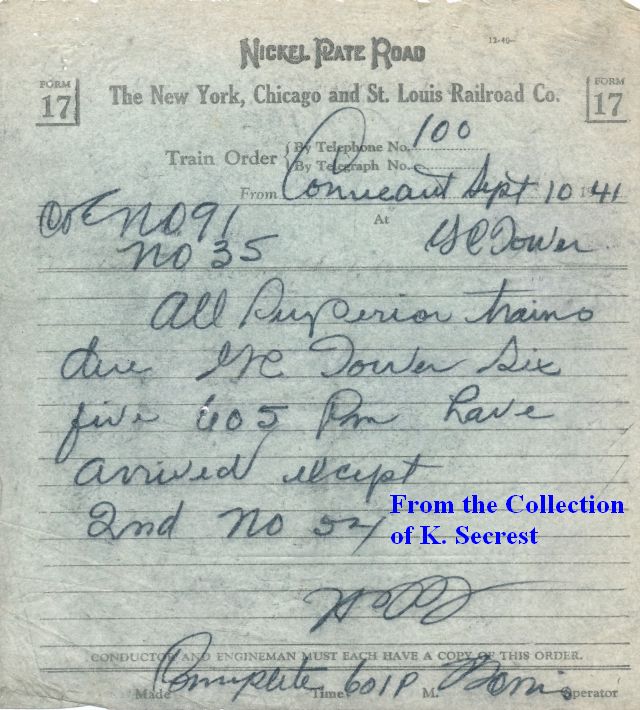 12-40
NICKEL PLATE ROAD
FORM 17
The New York, Chicago and St. Louis Railroad Co.
FORM 17
Train Order { By Telephone No. 100
By Telegraph No.
From Conneaut Sept 10 1941
At
C&E No 91
No 35
Tower
All Superior trains
due Tower Six
five 605 Pm have
arrived except
2nd No 54
From the Collection
of K. Secrest
CONDUCTOR AND ENGINEMAN MUST EACH HAVE A COPY OF THIS ORDER.
Made Complete Time 601P M. Operator